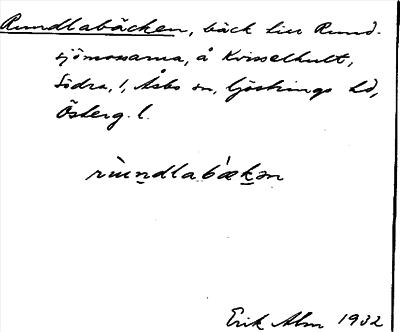 Rundlabäcken, bäck här Rund-
sjömossarna, å Kvisselhult,
Södra, 1, Åsbo sn, Göstrings hd,
Österg. l.
rùndlabækən
Erik Alm 1932